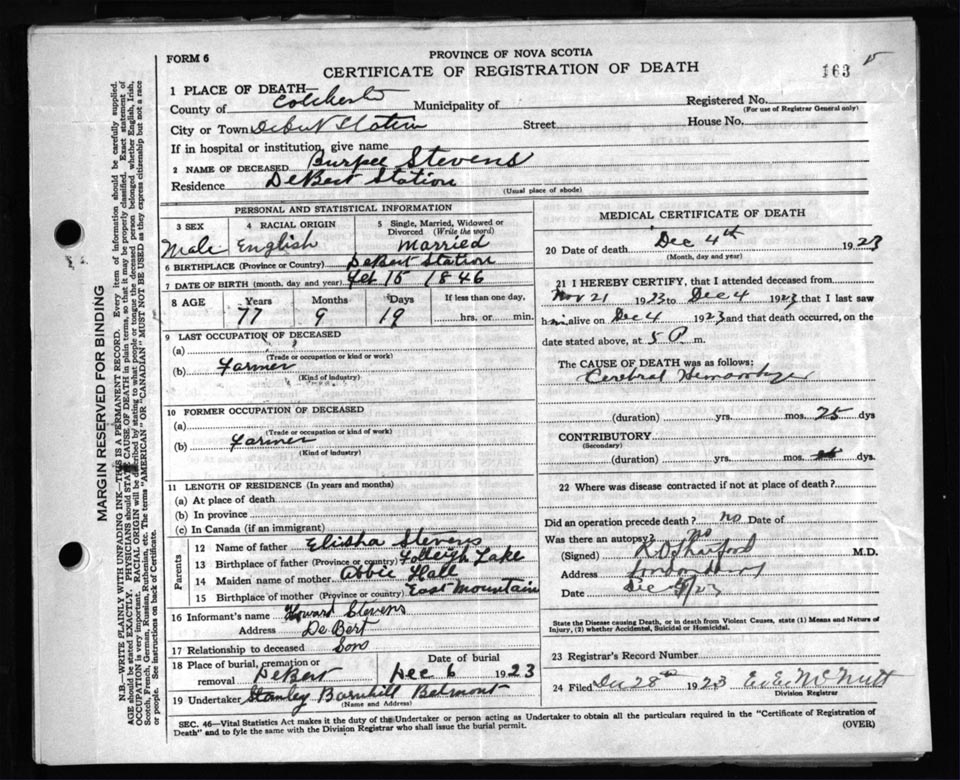 FORM 6
PROVINCE OF NOVA SCOTIA
CERTIFICATE OF REGISTRATION OF DEATH
163
1 PLACE OF DEATH
County of Colchester Municipality of
Registered No.
(For use of Registrar General only)
City or Town Debert Station Street House No.
If in hospital or institution, give name
2 NAME OF DECEASED Burpee Stevens
Residence DeBert Station
(Usual place of abode)
PERSONAL AND STATISTICAL INFORMATION
3 SEX 4 RACIAL ORIGIN 5 Single, Married, Widowed or Divorced (Write the word)
Male English Married
6 BIRTHPLACE (Province or Country) DeBert Station
7 DATE OF BIRTH (month, day and year) Feb 15 1846
8 AGE Years Months Days If less than one day,
77 9 19 hrs. or min.
9 LAST OCCUPATION OF DECEASED
(a)
(Trade or occupation or kind of work)
(b) Farmer
(Kind of industry)
10 FORMER OCCUPATION OF DECEASED
(a)
(Trade or occupation or kind of work)
(b) Farmer
(Kind of industry)
11 LENGTH OF RESIDENCE (In years and months)
(a) At place of death
(b) In province
(c) In Canada (if an immigrant)
Parents
12 Name of father Elisha Stevens
13 Birthplace of father (Province or country) Folleigh Lake
14 Maiden name of mother Abbie Hall
15 Birthplace of mother (Province or country) East Mountain
16 Informant's name Howard Stevens
Address DeBert
17 Relationship to deceased Son
18 Place of burial, cremation or removal DeBert Date of burial Dec 6 1923
19 Undertaker Stanley Barnhill Belmont
(Name and Address)
MEDICAL CERTIFICATE OF DEATH
20 Date of death Dec 4th 1923
(Month, day and year)
21 I HEREBY CERTIFY, that I attended deceased from
Nov 21 1923 to Dec 4 1923 that I last saw
him alive on Dec 4 1923 and that death occurred, on
date stated above, at 5 P m.
The CAUSE OF DEATH was as follows:
Cerebral Hemorrhage
(duration) yrs. mos. 25 dys
CONTRIBUTORY
(Secondary)
(duration) yrs. mos. dys.
22 Where was disease contracted if not at place of death?
Did an operation precede death? no Date of
Was there an autopsy? no
(Signed) M.D.
Address Londonderry
Date Dec /23
State the Disease causing Death, or in death from Violent Causes, state (1) Means and Nature of Injury, (2) whether Accidental, Suicidal or Homicidal.
23 Registrar's Record Number
24 Filed Dec 28th 1923 McNutt
Division Registrar
SEC. 46—Vital Statistics Act makes it the duty of the Undertaker or person acting as Undertaker to obtain all the particulars required in the "Certificate of Registration of
Death" and to fyle the same with the Division Registrar who shall issue the burial permit.
(OVER)
MARGIN RESERVED FOR BINDING
N.B.—WRITE PLAINLY WITH UNFADING INK—THIS IS A PERMANENT RECORD. Every item of information should be carefully supplied.
AGE should be stated EXACTLY. PHYSICIANS should STATE CAUSE OF DEATH in plain terms, so that it may be properly classified. Exact statement of
OCCUPATION is very important. RACIAL ORIGIN will be described by stating to what people or tongue the deceased person belonged whether English, Irish,
Scotch, French, German, Russian, Ruthenian, etc. The terms "AMERICAN" OR "CANADIAN" MUST NOT BE USED as they express citizenship but not a race
or people. See instructions on back of Certificate.